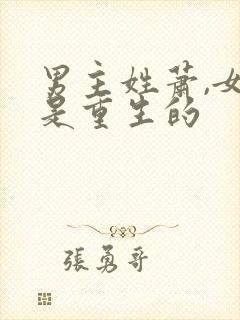 男主姓蕭,女
是重生的
張勇哥